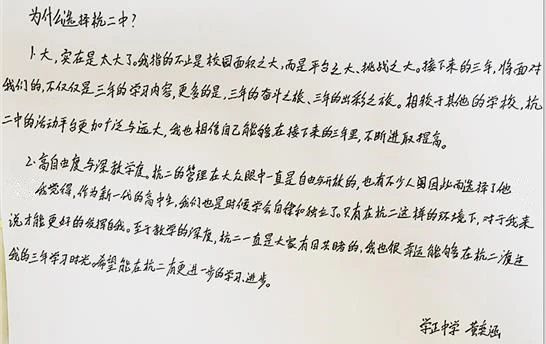 为什么选择杭二中?
1.大,实在是太大了。我指的不止是校园面积之大,而是平台之大、挑战之大。接下来的三年,将面对
我们的,不仅仅是三年的学习内容,更多的是,三年的奋斗之旅、三年的出彩之旅。相较于其他的学校,杭
二中的活动平台更加广泛与远大,我也相信自己能够在接下来的三年里,不断进取提高。
2.高自由度与深教学度。杭二的管理在大众眼中一直是自由与开放的,也有不少人因因此而选择了他
我觉得,作为新一代的高中生,我们也是时候学会自律和独立了。只有在杭二这样的环境下,对于我来
说才能更好的发挥自我。至于教学的深度,杭二一直是大家有目共睹的,我也很荣幸能够在杭二渡过
我的三年学习时光。希望能在杭二有更进一步的学习、进步。
学正中学 黄奕涵